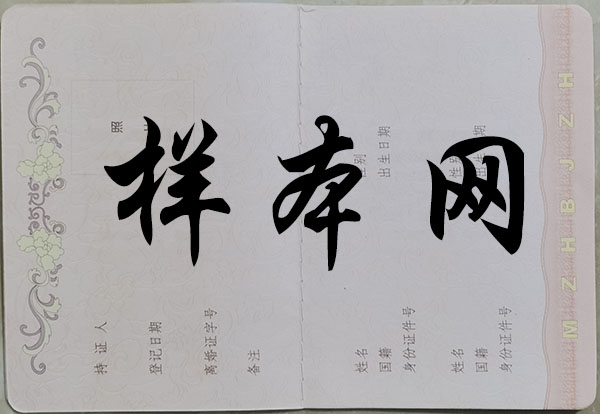 样本网
照
持证人
登记日期
离婚证字号
备注
姓名
性别
国籍
出生日期
身份证件号
姓名
国籍
身份证件号
MZHBJZH